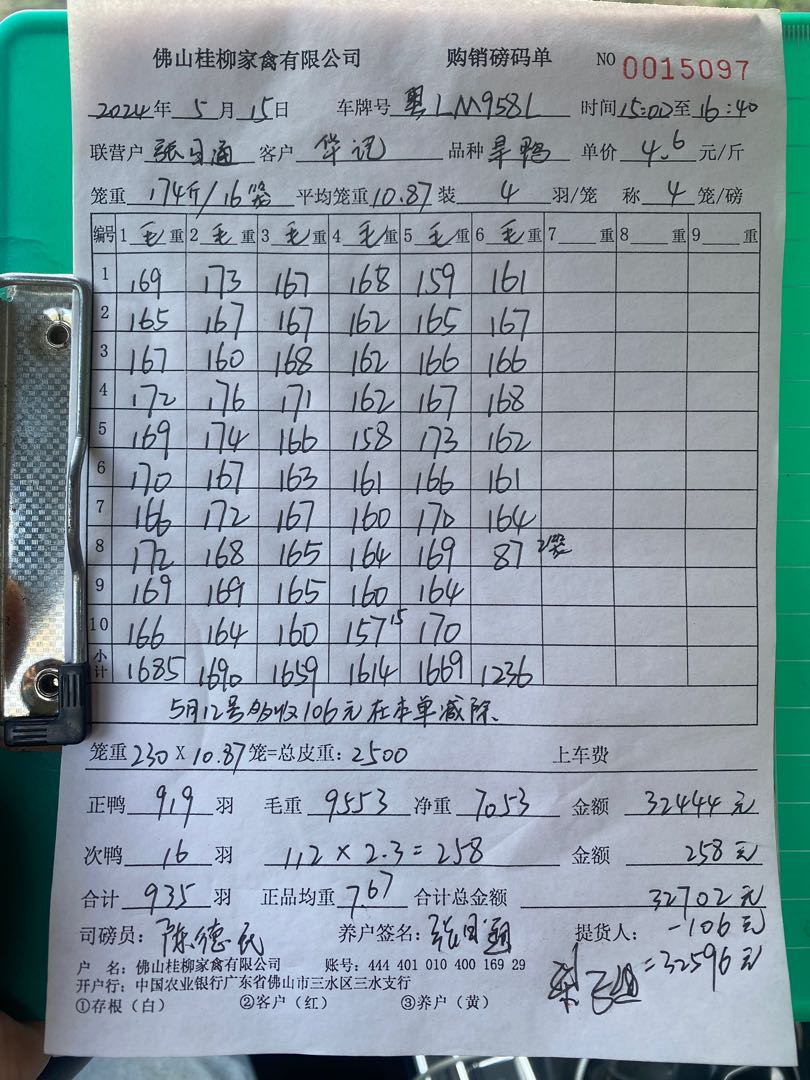 佛山桂柳家禽有限公司 购销磅码单 NO 0015097
2024年 5月 15日 车牌号 粤LM958L 时间 15:00至 16:40
联营户 客户 华记 品种 旱鸭 单价 4.6 元/斤
笼重 174斤/16笼 平均笼重 10.87 装 4 羽/笼 称 4 笼/磅
编号 1 毛 重 2 毛 重 3 毛 重 4 毛 重 5 毛 重 6 毛 重 7 重 8 重 9 重
1 169 173 167 168 159 161
2 165 167 167 162 165 167
3 167 160 168 162 166 166
4 172 176 171 162 167 168
5 169 174 166 158 173 162
6 170 167 163 161 166 161
7 166 172 167 160 170 164
8 172 168 165 164 169 87 2笼
9 169 169 165 160 164
10 166 164 160 157 15 170
小计 1685 1690 1659 1614 1669 1236
5月12号多收106元在本单减除、
笼重 230 X 10.87 笼=总皮重: 2500 上车费
正鸭 919 羽 毛重 9553 净重 7053 金额 32444元
次鸭 16 羽 112 × 2.3 = 258 金额 258元
合计 935 羽 正品均重 7.67 合计总金额 32702元
司磅员: 陈德民 养户签名: 提货人: -106元
=32596元
户 名: 佛山桂柳家禽有限公司 账号: 444 401 010 400 169 29
开户行: 中国农业银行广东省佛山市三水区三水支行
①存根（白） ②客户（红） ③养户（黄）